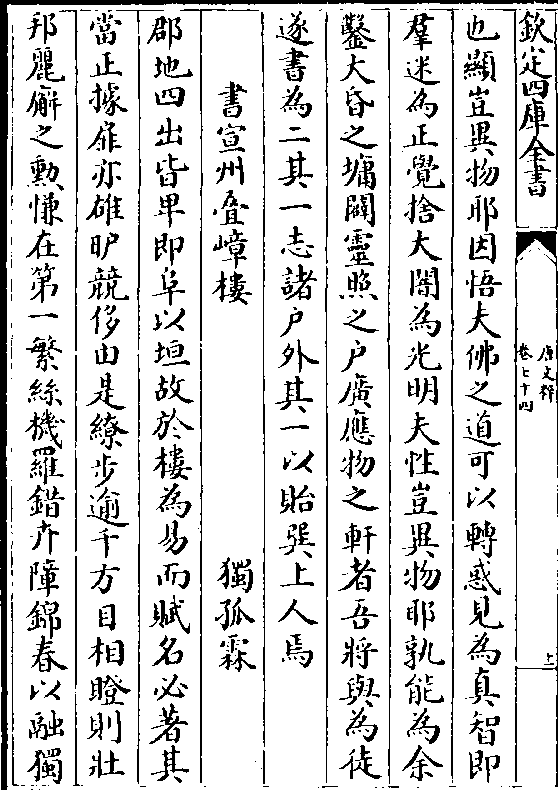 欽定四庫全書
唐文粹
卷七十四
十二
也顯豈異物耶因悟夫佛之道可以轉惑見為真智即
羣迷為正覺捨大闇為光明夫性豈異物耶孰能為余
鑿大昏之墉闢靈照之户廣應物之軒者吾將與為徒
遂書為二其一志諸户外其一以貽巽上人焉
書宣州叠嶂樓
獨孤霖
郡地四出皆卑即阜以垣故於樓為易而賦名必著其
當正據雄亦雄旷競侈由是繚步逾千方目相瞪則壯
邦麗廨之勲慊在第一繁絲機羅錯卉障錦春以融獨